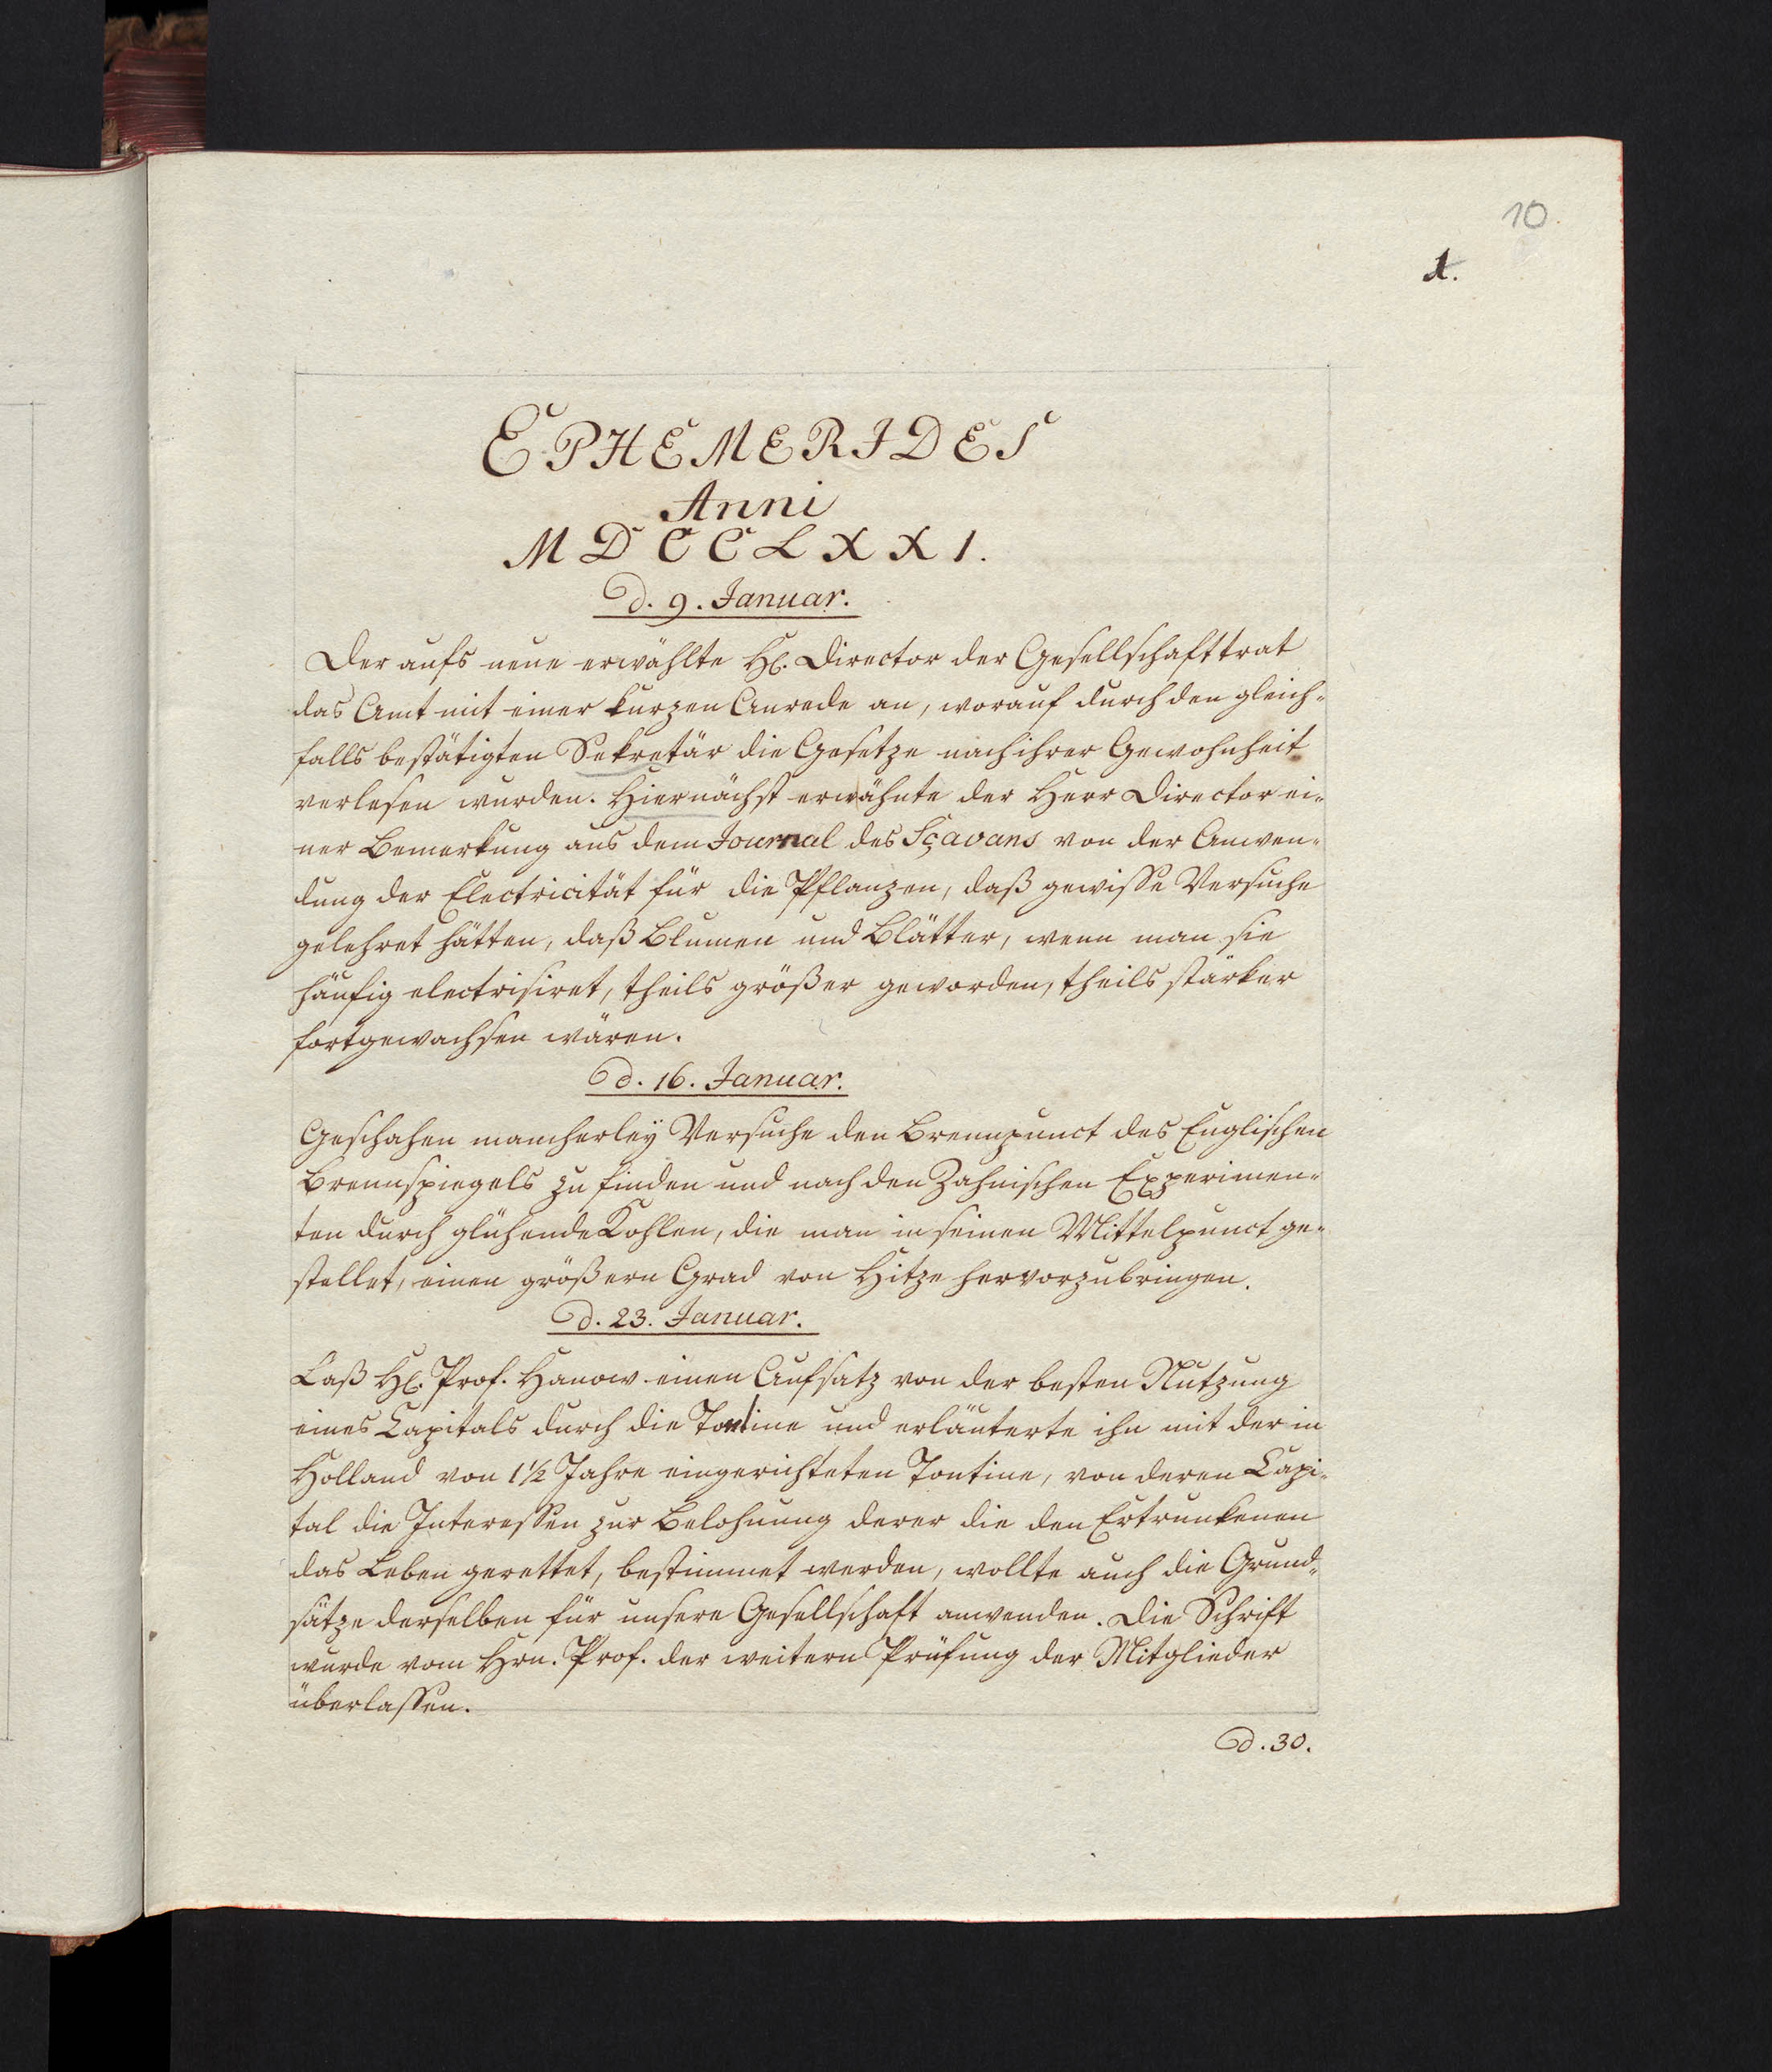 10.
1.
EPHEMERIDES
Anni
MDCCLXXI.
d. 9. Januar.
Der aufs neue erwählte H. Director der Gesellschaft trat
das Amt mit einer kurzen Anrede an, worauf durch den gleich-
falls bestätigten Sekretär die Gesetze nach ihrer Gewohnheit
verlesen wurden. Hiernächst erwähnte der Herr Director ei-
ner Bemerkung aus dem Journal des Sçavans von der Anwen-
dung der Electricität für die Pflanzen, daß gewisse Versuche
gelehret hätten, daß Blumen und Blätter, wenn man sie
häufig electrisiret, theils größer geworden, theils stärker
fortgewachsen wären.
d. 16. Januar.
Geschahen mancherley Versuche den Brennpunct des Englischen
Brennspiegels zu finden und nach den Zahnischen Experimen-
ten durch glühende Kohlen, die man in seinen Mittelpunct ge-
stellet, einen größern Grad von Hitze hervorzubringen.
d. 23. Januar.
Laß H. Prof. Hanow einen Aufsatz von der besten Nutzung
eines Capitals durch die Tontine und erläuterte ihn mit der in
Holland von 1½ Jahre eingerichteten Tontine, von deren Capi-
tal die Interessen zur Belohnung derer die den Ertrunkenen
das Leben gerettet, bestimmet werden, wollte auch die Grund-
sätze derselben für unsere Gesellschaft anwenden. Die Schrift
wurde vom Hrn. Prof. der weitern Prüfung der Mitglieder
überlassen.
d. 30.